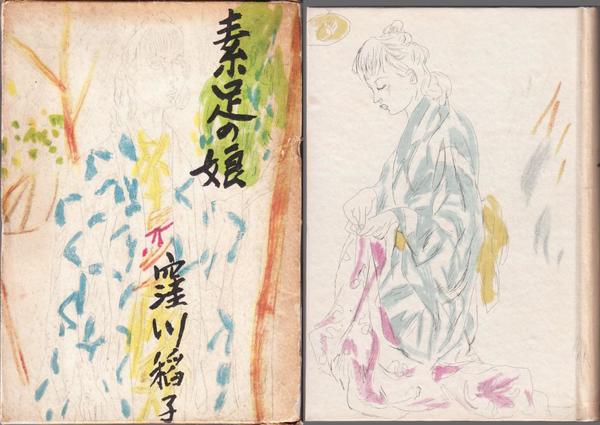 素足の娘
窪川稲子